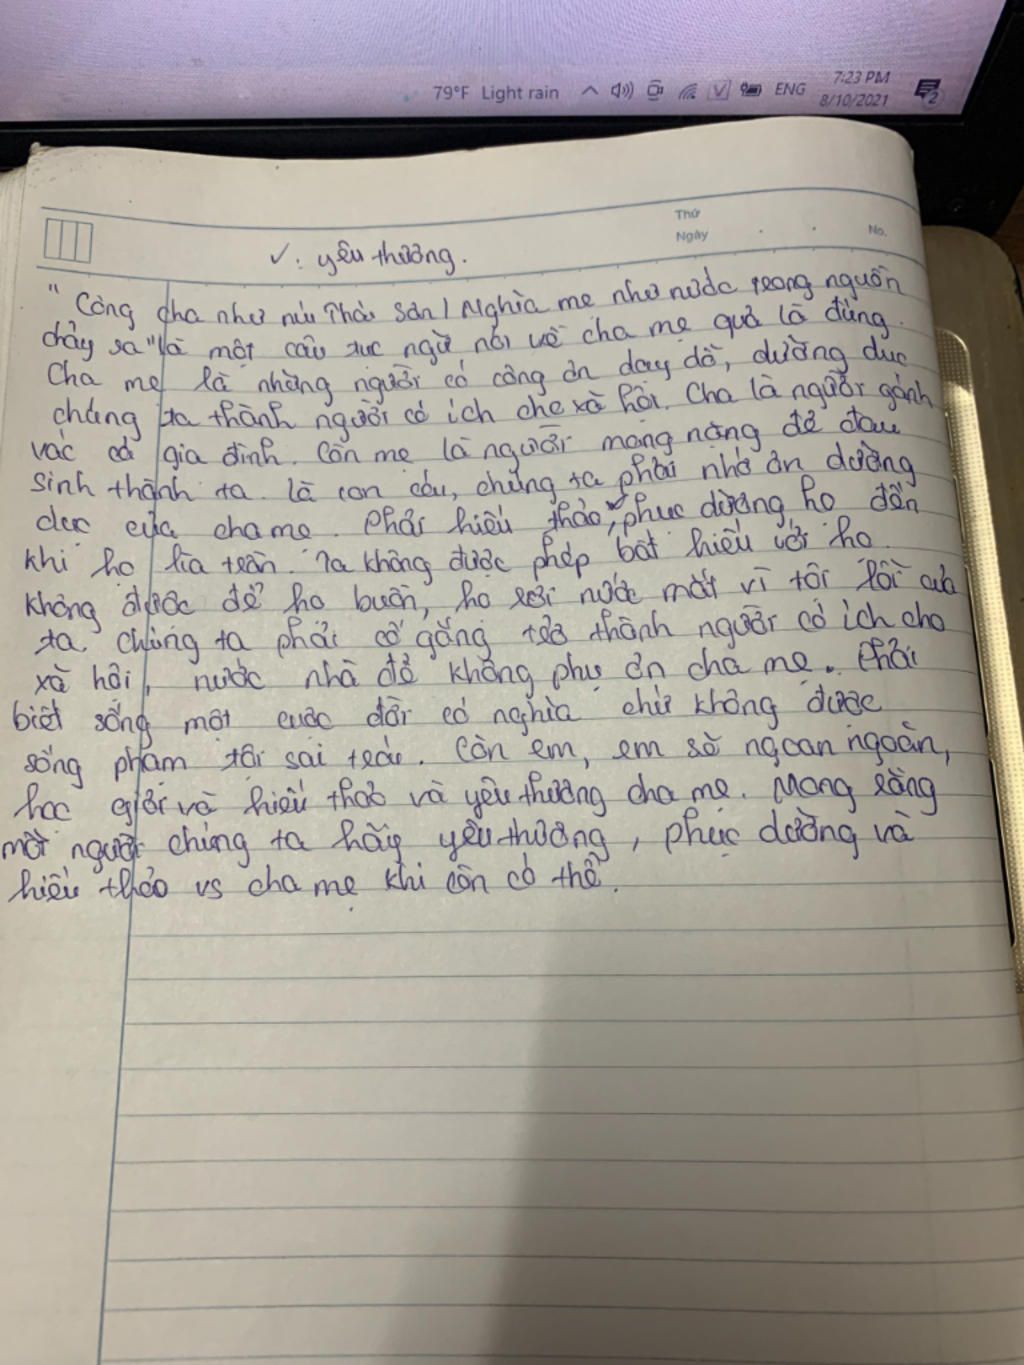 79°F Light rain ENG 7:23 PM
8/10/2021 2
Thứ
Ngày No.
V: yêu thương.
"Công cha như núi Thái Sơn / Nghĩa mẹ như nước trong nguồn
chảy ra" là một câu tục ngữ nói về cha mẹ quả là đúng.
Cha mẹ là những người có công ơn dạy dỗ, dưỡng dục
chúng ta thành người có ích cho xã hội. Cha là người gánh
vác cả gia đình. Còn mẹ là người mang nặng đẻ đau
sinh thành ta. Là con cháu, chúng ta phải nhớ ơn dưỡng
dục của cha mẹ. Phải hiếu thảo, phục dưỡng họ đến
khi họ lìa trần. Ta không được phép bất hiếu với họ.
Không được để họ buồn, họ rơi nước mắt vì tội lỗi của
ta. Chúng ta phải cố gắng trở thành người có ích cho
xã hội, nước nhà để không phụ ơn cha mẹ. Phải
biết sống một cuộc đời có nghĩa chứ không được
sống phạm tội sai trái. Còn em, em sẽ ngoan ngoãn,
học giỏi và hiếu thảo và yêu thương cha mẹ. Mong rằng
mỗi người chúng ta hãy yêu thương, phục dưỡng và
hiếu thảo vs cha mẹ khi còn có thể.